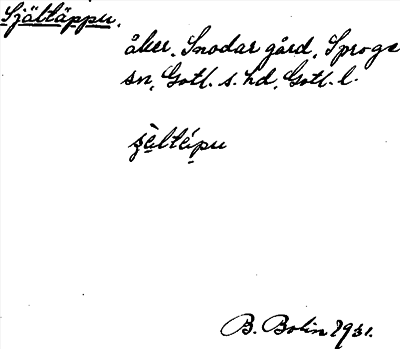 Själtäppu.
åker, Snodar gård, Sproge
sn, Gotl. s. hd, Gotl. l.
sèltépu
B. Bolin 1931.